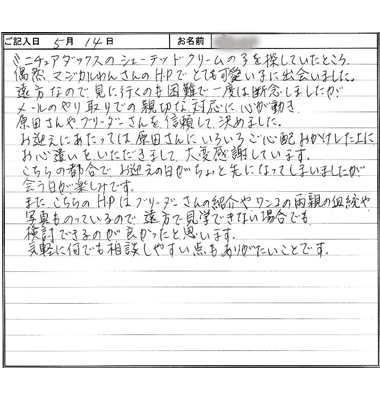 ご記入日 5月14日 お名前
ミニチュアダックスのシェーデッドクリームの子を探していたところ
偶然、マジカルわんさんのHPでとても可愛い子に出会いました。
遠方なので見に行くのも困難で一度は断念しましたが
メールのやり取りでの親切な対応に心が動き、
原田さんやブリーダーさんを信頼して決めました。
お迎えにあたっては原田さんにいろいろご心配おかけした上に
お心遣いをいただきまして、大変感謝しています。
こちらの都合でお迎えの日がちょっと先になってしまいましたが
会う日が楽しみです。
また、こちらのHPはブリーダーさんの紹介やワンコの両親の血統や
写真ものっているので遠方で見学できない場合でも
検討できるのが良かったと思います。
気軽に何でも相談しやすい点もありがたいことです。